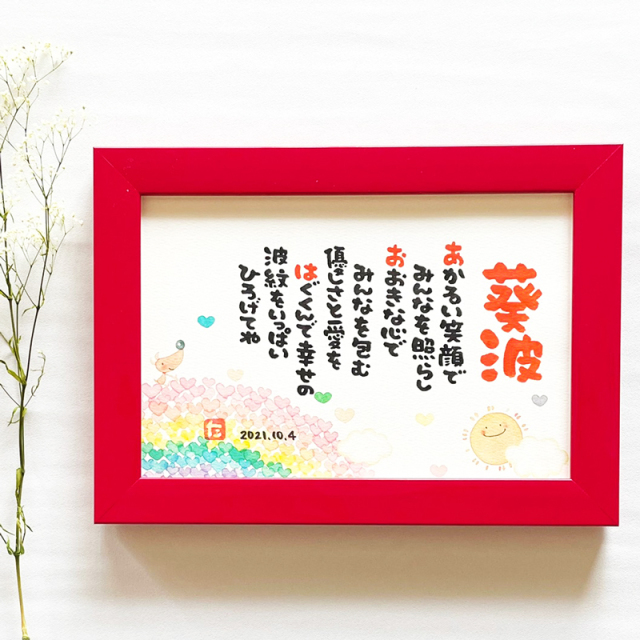 葵波
あかるい笑顔で
みんなを照らし
おおきな心で
みんなを包む
優しさと愛を
はぐくんで幸せの
波紋をいっぱい
ひろげてね
2021.10.4